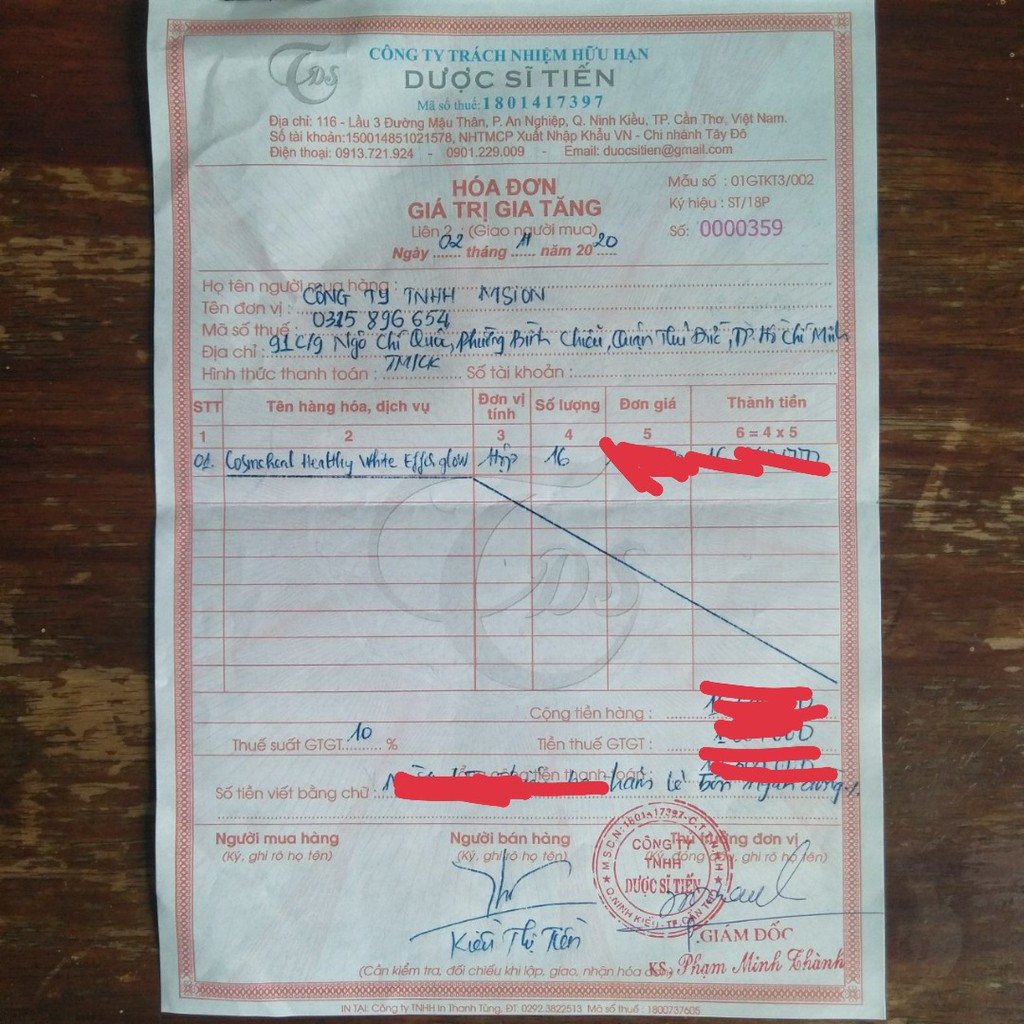 TDS
CÔNG TY TRÁCH NHIỆM HỮU HẠN
DƯỢC SĨ TIẾN
Mã số thuế: 1801417397
Địa chỉ: 116 - Lầu 3 Đường Mậu Thân, P. An Nghiệp, Q. Ninh Kiều, TP. Cần Thơ, Việt Nam.
Số tài khoản:150014851021578, NHTMCP Xuất Nhập Khẩu VN - Chi nhánh Tây Đô
Điện thoại: 0913.721.924 - 0901.229.009 - Email: duocsitien@gmail.com
HÓA ĐƠN
GIÁ TRỊ GIA TĂNG
Liên 2 : (Giao người mua)
Ngày 02 tháng 11 năm 2020
Mẫu số : 01GTKT3/002
Ký hiệu : ST/18P
Số: 0000359
Họ tên người mua hàng :
Tên đơn vị : CÔNG TY TNHH MSION
Mã số thuế : 0315 896 654
Địa chỉ : 91C/9 Ngô Chí Quốc, Phường Bình Chiểu, Quận Thủ Đức, TP. Hồ Chí Minh
Hình thức thanh toán : TM/CK Số tài khoản :
STT Tên hàng hóa, dịch vụ Đơn vị tính Số lượng Đơn giá Thành tiền
1 2 3 4 5 6 = 4 x 5
01. Cosmeheal Healthy White Effer glow Hộp 16
TDS
Cộng tiền hàng :
Thuế suất GTGT 10 % Tiền thuế GTGT :
tiền thanh toán :
Số tiền viết bằng chữ :
Người mua hàng Người bán hàng Thủ trưởng đơn vị
(Ký, ghi rõ họ tên) (Ký, ghi rõ họ tên) (Ký, đóng dấu, ghi rõ họ tên)
M.S.C.N: 1801417397-C.T.TNHH
CÔNG TY
TNHH
DƯỢC SĨ TIẾN
Q.NINH KIỀU-TP.CẦN THƠ
Kiều Thị Tiến
GIÁM ĐỐC
KS. Phạm Minh Thành
(Cần kiểm tra, đối chiếu khi lập, giao, nhận hóa đơn)
IN TẠI: Công ty TNHH In Thanh Tùng, ĐT: 0292.3822513 Mã số thuế : 1800737605